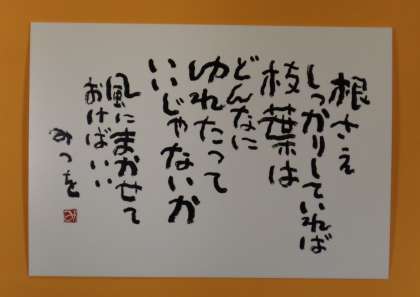 根さえ
しっかりしていれば
枝葉は
どんなに
ゆれたって
いいじゃないか
風にまかせて
おけばいい
みつを
み